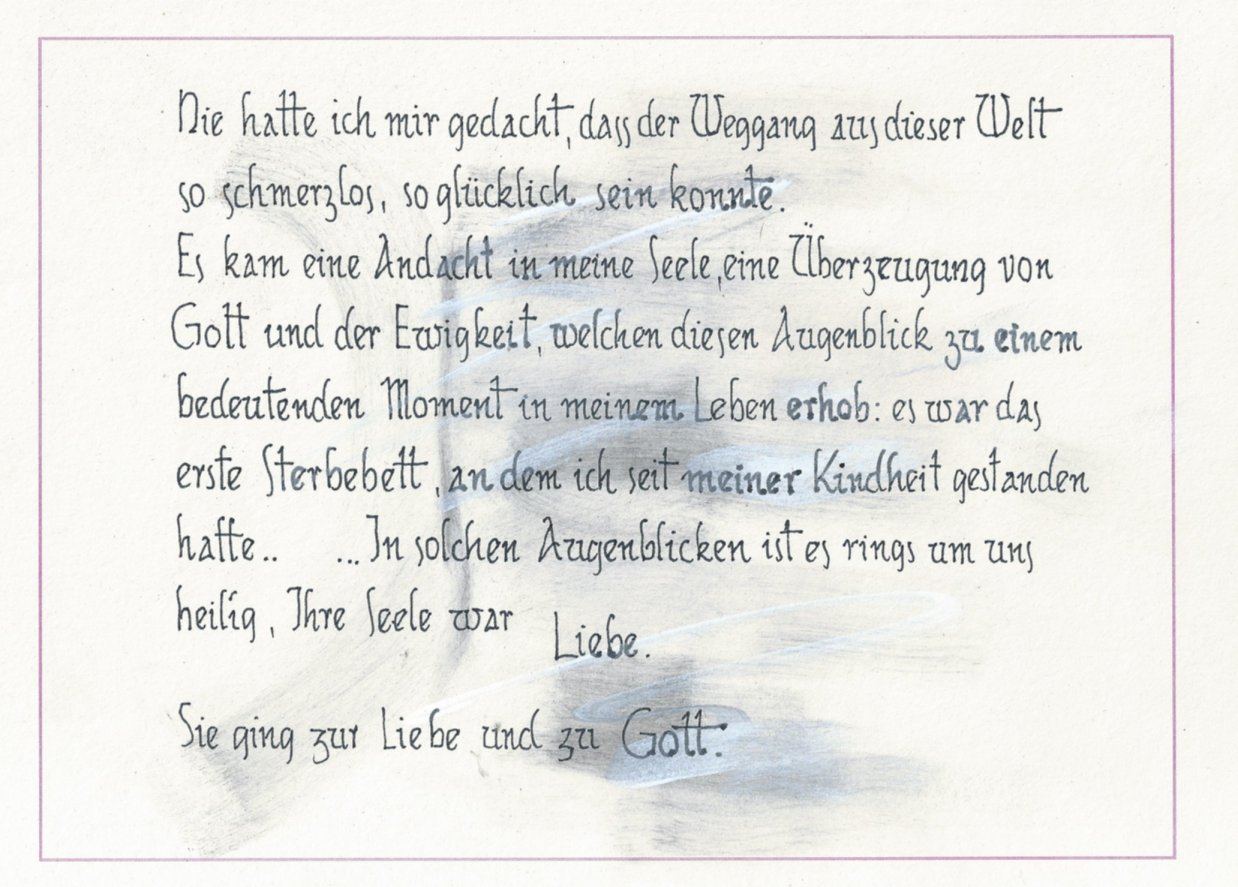 Nie hatte ich mir gedacht, dass der Weggang aus dieser Welt
so schmerzlos, so glücklich sein konnte.
Es kam eine Andacht in meine Seele, eine Überzeugung von
Gott und der Ewigkeit, welchen diesen Augenblick zu einem
bedeutenden Moment in meinem Leben erhob: es war das
erste Sterbebett, an dem ich seit meiner Kindheit gestanden
hatte.. ...In solchen Augenblicken ist es rings um uns
heilig, Ihre Seele war Liebe.
Sie ging zur Liebe und zu Gott.